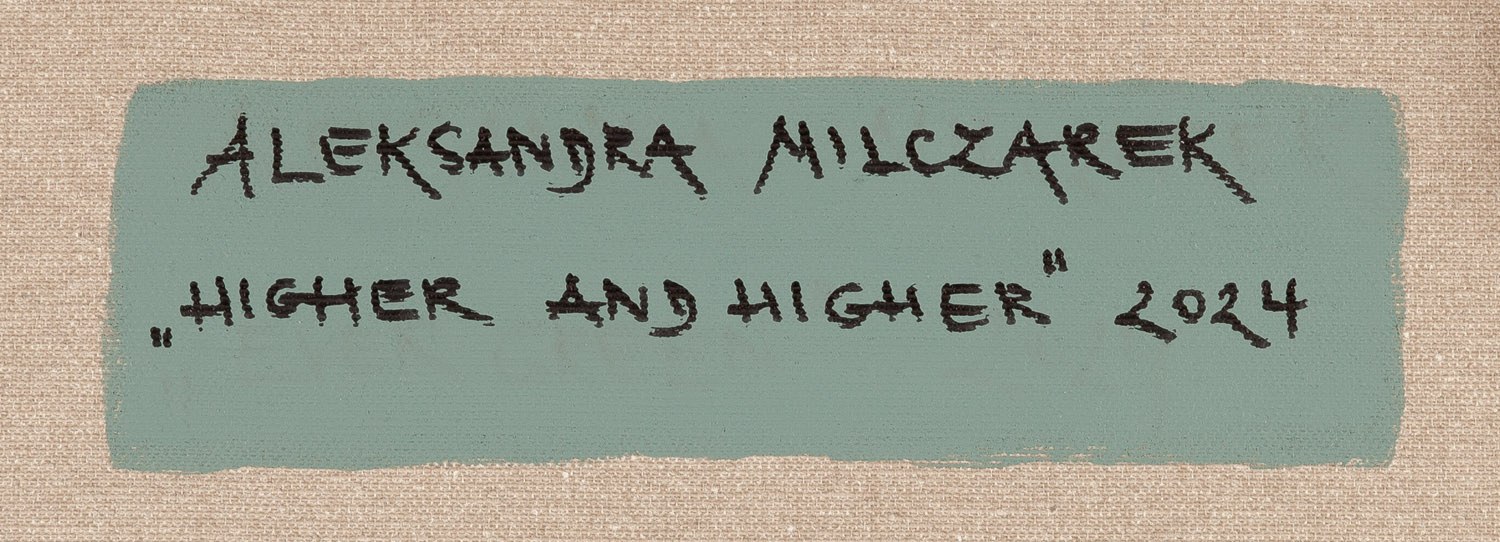 ALEKSANDRA MILCZAREK
„HIGHER AND HIGHER" 2024